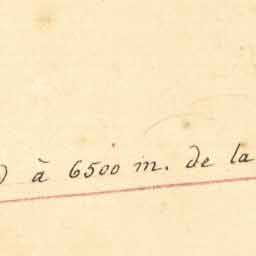 à 6500 m. de la